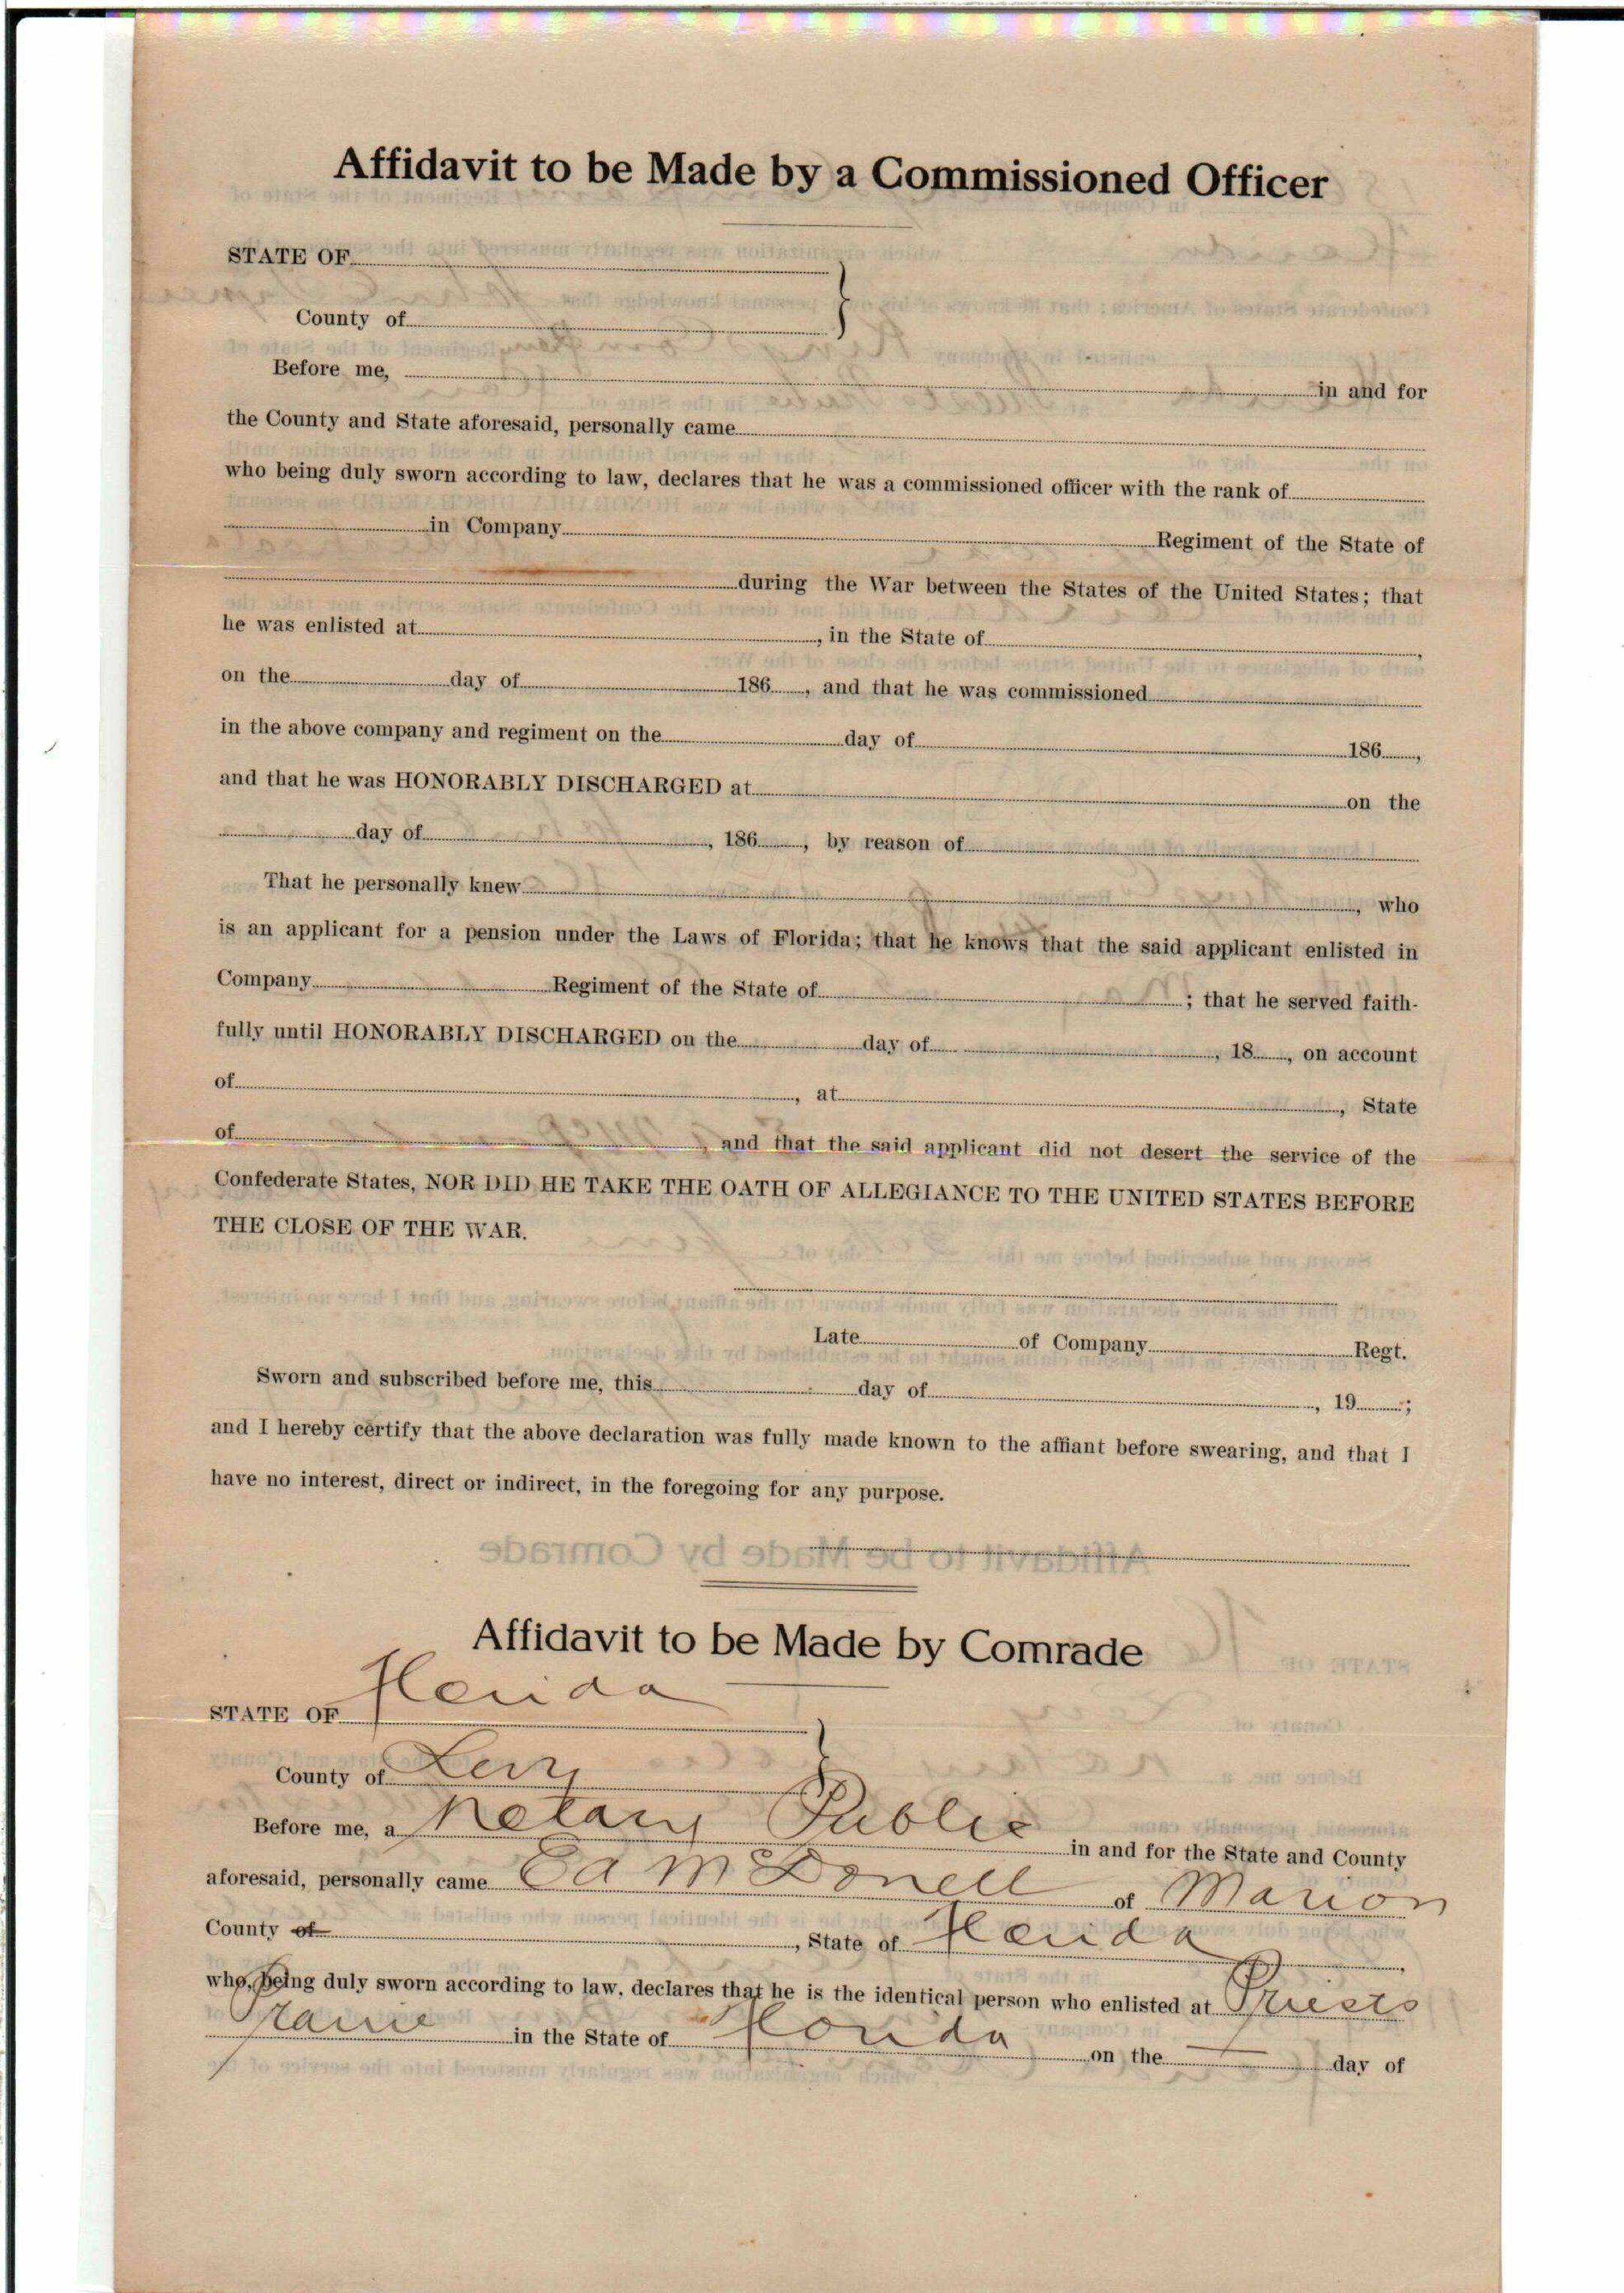 Affidavit to be Made by a Commissioned Officer
STATE OF
County of
Before me, in and for
the County and State aforesaid, personally came
who being duly sworn according to law, declares that he was a commissioned officer with the rank of
in Company Regiment of the State of
during the War between the States of the United States; that
he was enlisted at , in the State of ,
on the day of 186 , and that he was commissioned
in the above company and regiment on the day of 186 ,
and that he was HONORABLY DISCHARGED at on the
day of , 186 , by reason of
That he personally knew , who
is an applicant for a pension under the Laws of Florida; that he knows that the said applicant enlisted in
Company Regiment of the State of ; that he served faith-
fully until HONORABLY DISCHARGED on the day of , 18 , on account
of , at , State
of , and that the said applicant did not desert the service of the
Confederate States, NOR DID HE TAKE THE OATH OF ALLEGIANCE TO THE UNITED STATES BEFORE
THE CLOSE OF THE WAR.
Late of Company Regt.
Sworn and subscribed before me, this day of , 19 ;
and I hereby certify that the above declaration was fully made known to the affiant before swearing, and that I
have no interest, direct or indirect, in the foregoing for any purpose.
Affidavit to be Made by Comrade
STATE OF Florida
County of Levy
Before me, a Notary Public in and for the State and County
aforesaid, personally came Ed McDonell of Marion
County of , State of Florida ,
who, being duly sworn according to law, declares that he is the identical person who enlisted at Priests
Prairie in the State of Florida on the — day of